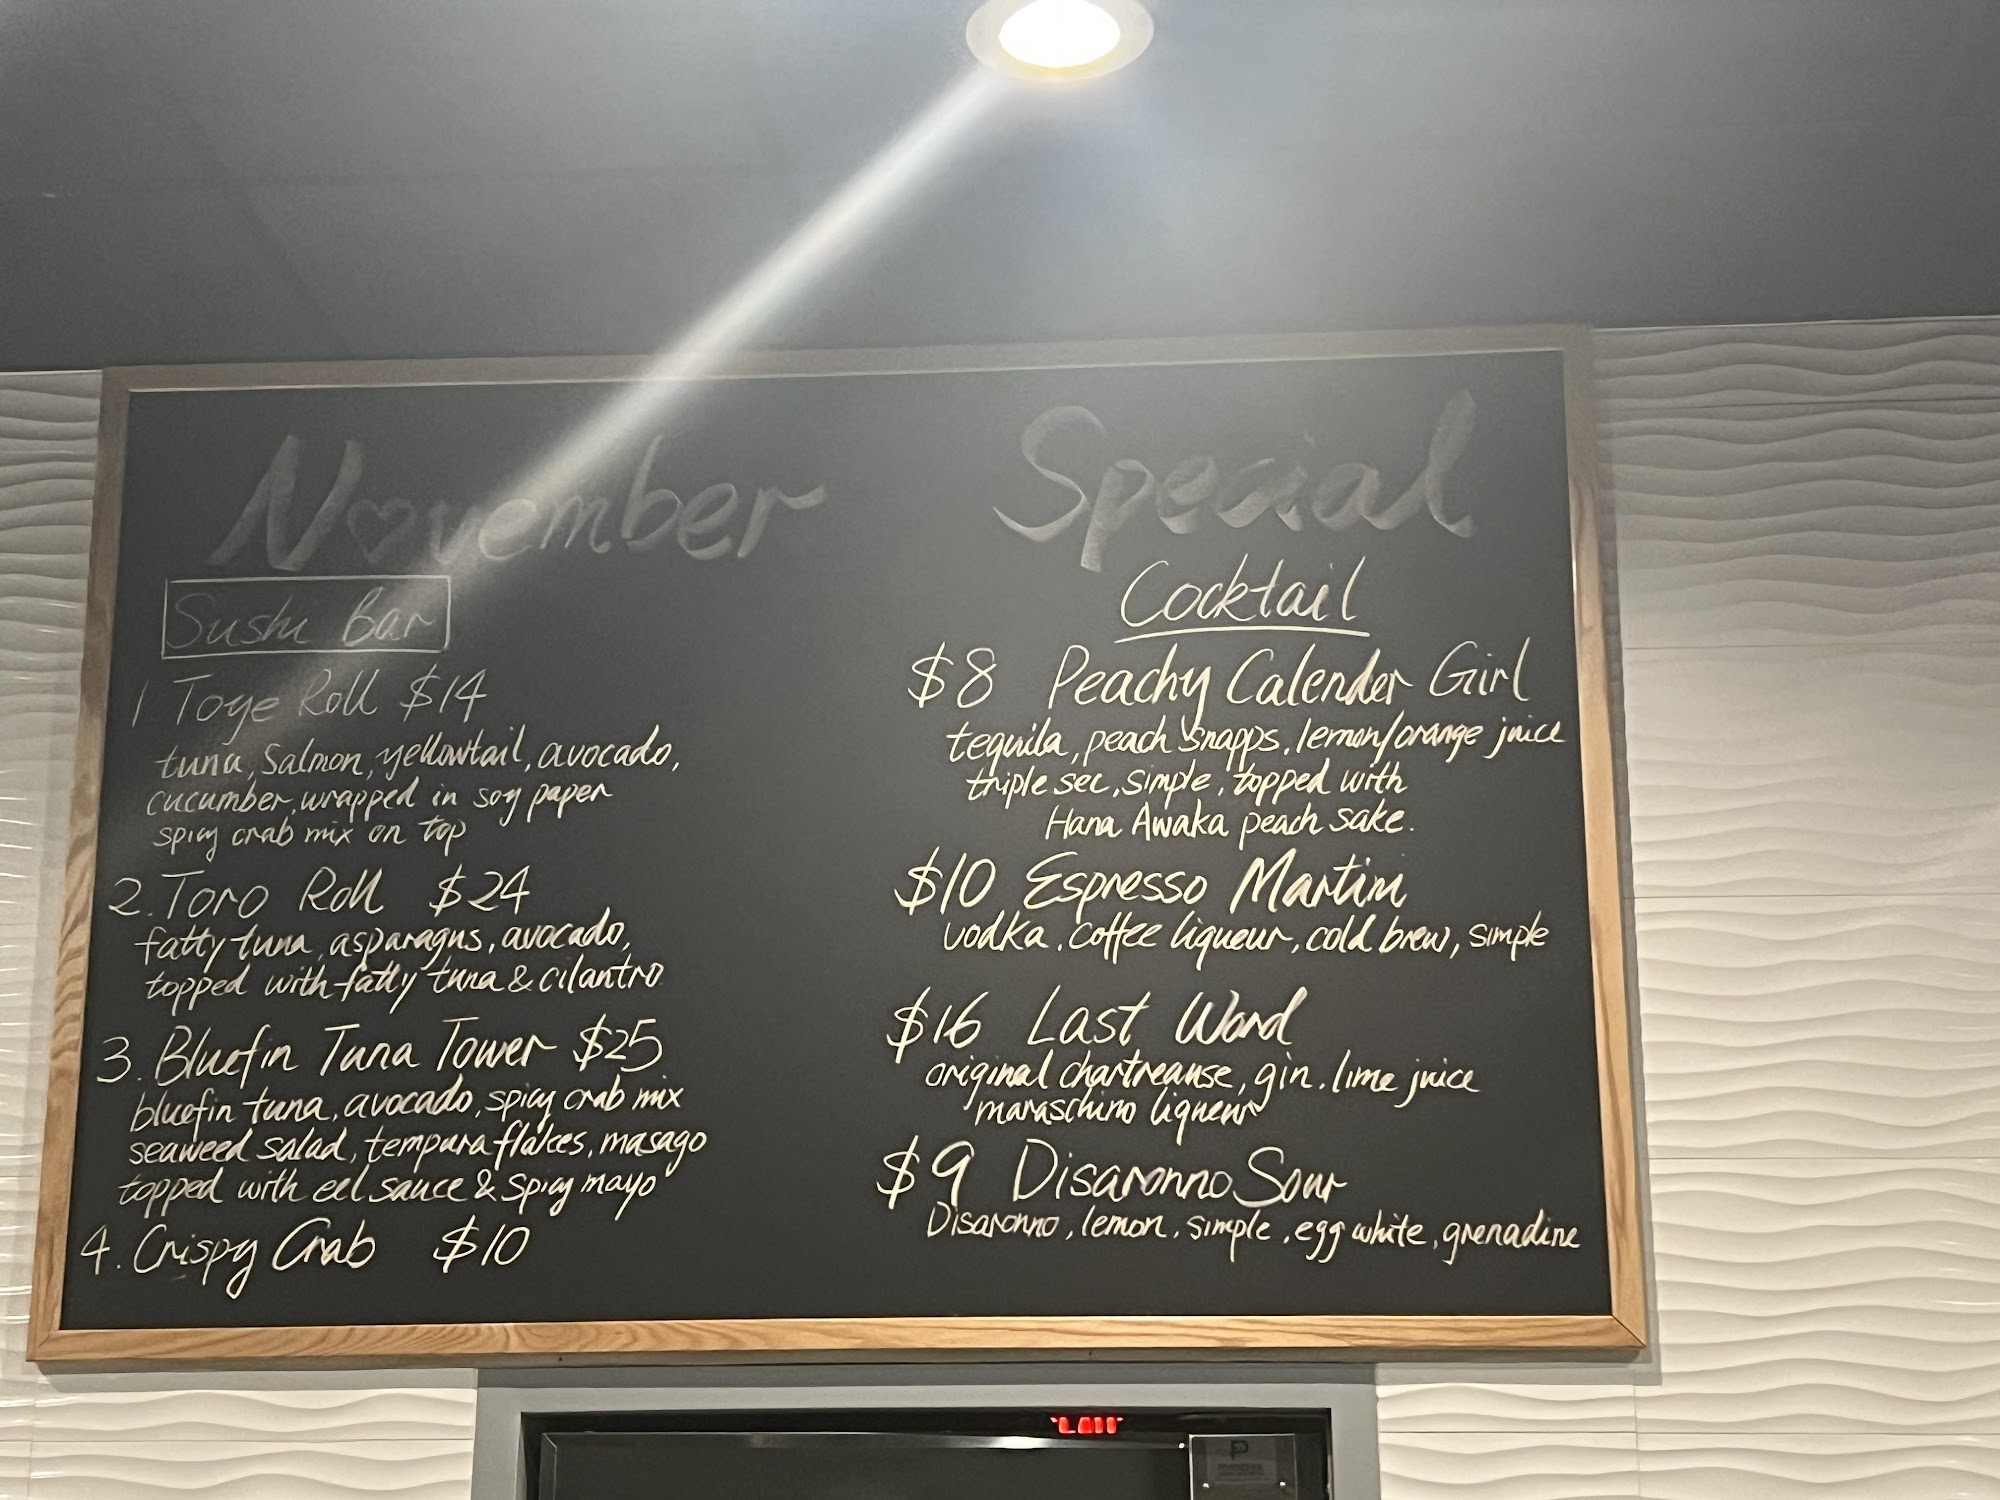 November Special
Sushi Bar
1 Toye Roll $14
tuna, Salmon, yellowtail, avocado,
cucumber, wrapped in soy paper
spicy crab mix on top
2. Toro Roll $24
fatty tuna, asparagus, avocado,
topped with fatty tuna & cilantro
3. Bluefin Tuna Tower $25
bluefin tuna, avocado, spicy crab mix
seaweed salad, tempura flakes, masago
topped with eel sauce & spicy mayo
4. Crispy Crab $10
Cocktail
$8 Peachy Calender Girl
tequila, peach snapps, lemon/orange juice
triple sec, simple, topped with
Hana Awaka peach sake.
$10 Espresso Martini
vodka, coffee liqueur, cold brew, simple
$16 Last Word
original chartreause, gin, lime juice
maraschino liqueur
$9 Disaronno Sour
Disaronno, lemon, simple, egg white, grenadine